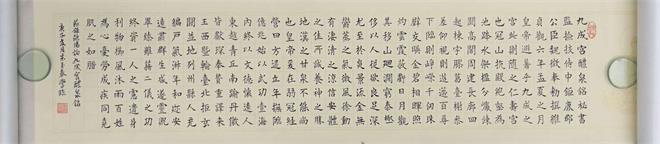 九成宮醴泉銘祕書
監檢挍侍中鉅鹿郡
公臣魏徵奉勅撰維
貞觀六年孟夏之月
皇帝避暑乎九成之
宮此則隨之仁壽宮
也冠山抗殿絕壑為
池跨水架楹分巖竦
闕高閣周建長廊四
起棟宇膠葛臺榭參
差仰視則迢遰百尋
下臨則崢嶸千仞珠
璧交暎金碧相暉照
灼雲霞蔽虧日月觀
其移山迴澗窮泰極
侈以人從欲良足深
尤至於炎景流金無
鬱蒸之氣微風徐動
有淒清之涼信安體
之佳所誠養神之勝
地漢之甘泉不能尚
也皇帝爰在弱冠經
營四方逮乎立年撫臨
億兆始以武功壹海
內終以文德懷遠人
東越青丘南踰丹徼
皆獻琛奉贄重譯來
王西暨輪臺北拒玄
闕並地列州縣人充
編戶氣淑年和迩安
遠肅群生咸遂靈貺
畢臻雖藉二儀之功
終資一人之慮遺身
利物櫛風沐雨百姓
為心憂勞成疾同堯
肌之如腊
節錄歐陽詢九成宮醴泉銘